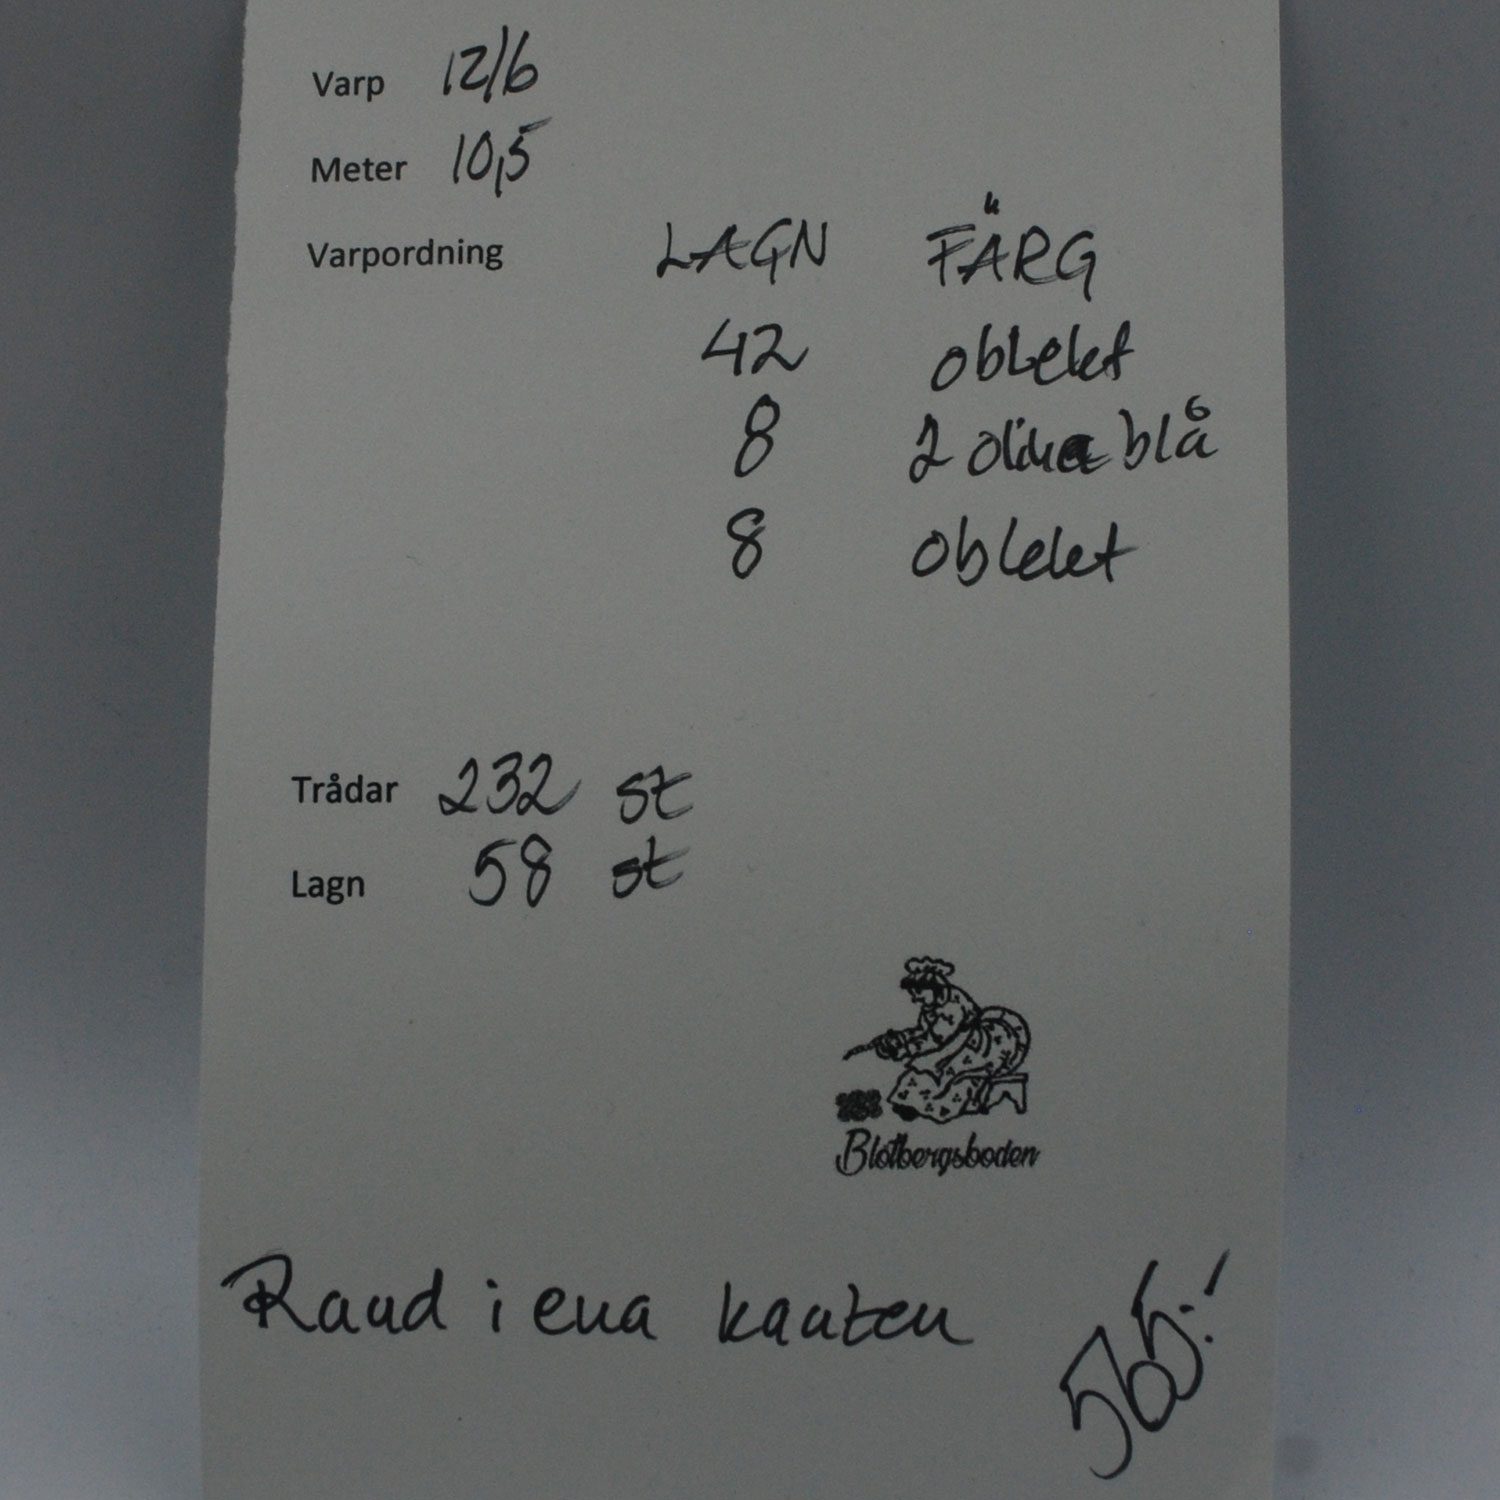 Varp 12/6
Meter 10,5
Varpordning LAGN FÄRG
42 oblekt
8 2 olika blå
8 oblekt
Trådar 232 st
Lagn 58 st
Blötbergsboden
Rand i ena kanten
565:-